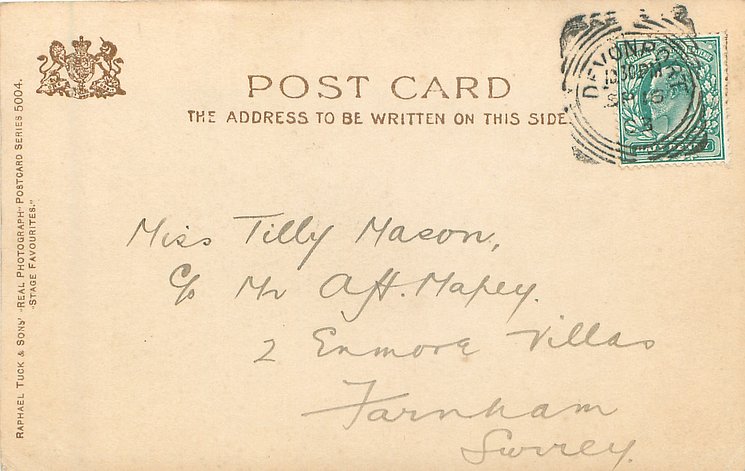 POST CARD
THE ADDRESS TO BE WRITTEN ON THIS SIDE
DEVONPORT
HALF PENNY
Miss Tilly Mason,
c/o Mr A.H. Mapey.
2 Enmore Villas
Farnham
Surrey.
RAPHAEL TUCK & SONS' "REAL PHOTOGRAPH" POSTCARD SERIES 5004.
"STAGE FAVOURITES."